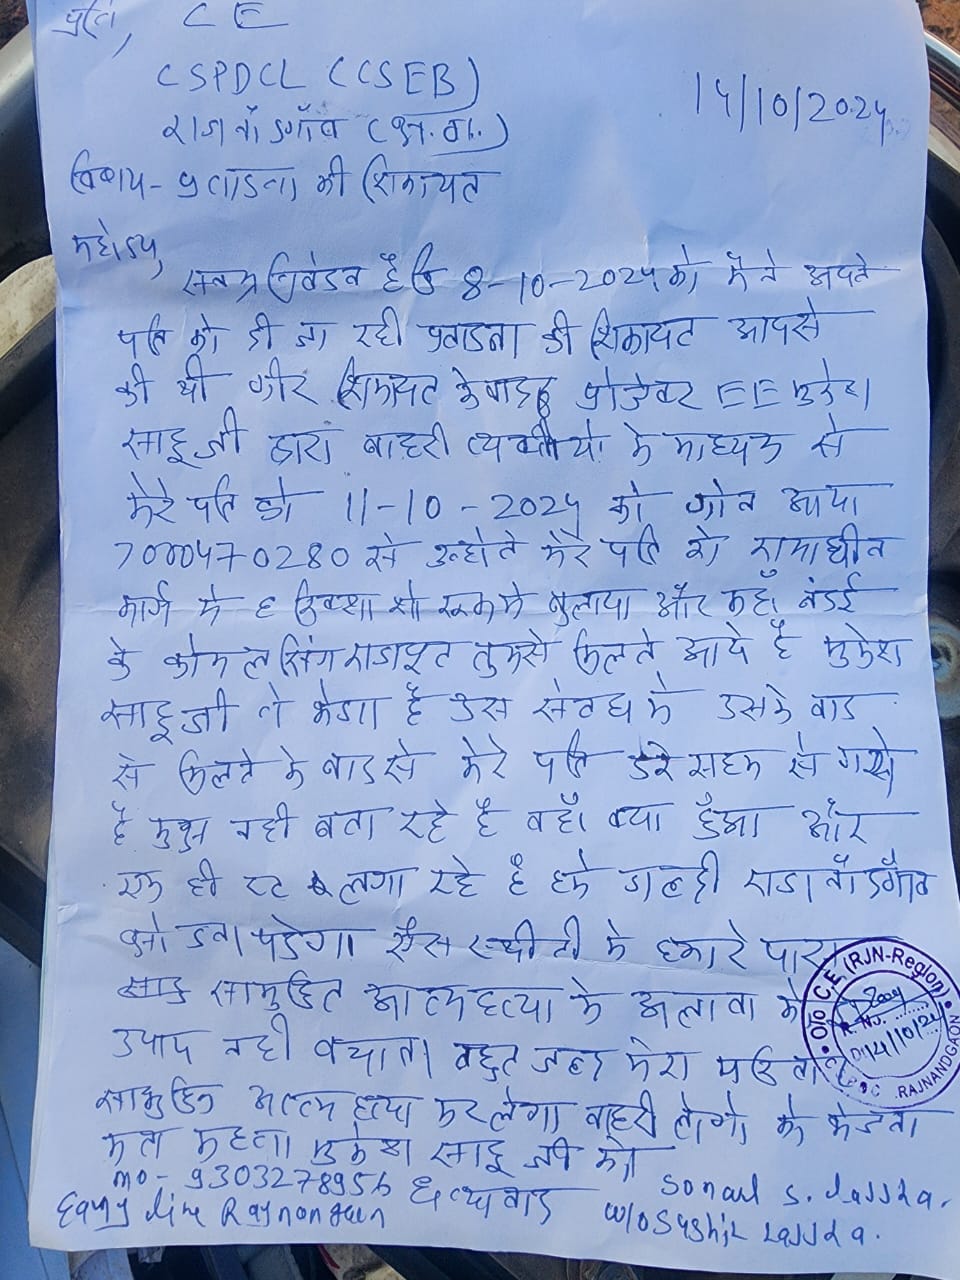 प्रति, CE
CSPDCL (CSEB)
14/10/2024
राजनाँदगाँव (छ.ग.)
विषय - प्रताडना की शिकायत
महोदय,
सनम्र निवेदन है कि 8-10-2024 को मैने अपने
पति को दी जा रही प्रताडना की शिकायत आपसे
की थी और शिकायत के बाद प्रोजेक्ट EE मुकेश
साहू जी द्वारा बाहरी व्यक्तीयो के माध्यम से
मेरे पति को 11-10-2024 को फोन आया
7000470280 से उन्होने मेरे पति को
मार्ग मे रिक्शा बुलाया और कहाँ
के कोमल सिंग राजपूत तुमसे मिलने आये है मुकेश
साहू जी ने भेजा है उस संबंध मे उसके बाद
से मिलने के बाद से मेरे पति डरे सहम से गये
है मुझे नही बता रहे है वहाँ क्या हुँआ और
एक ही रट लगा रहे है हमे जल्दी राजनाँदगाँव
छोडना पडेगा ऐस स्थीती मे हमारे पास
सामुहित आत्महत्या के अलावा को
उपाय नही बचाता बहुत जल्द मेरा परिवा
सामुहित आत्महत्या कर लेगा बाहरी लोगो के भेजना
मना करना मुकेश साहू जी को
धन्यवाद
mo - 9303278956
Rajnandgaon
Sonal S.
w/o Sushil
O/o C.E. (RJN-Region)
R. No.
D. 14/10/24
RAJNANDGAON